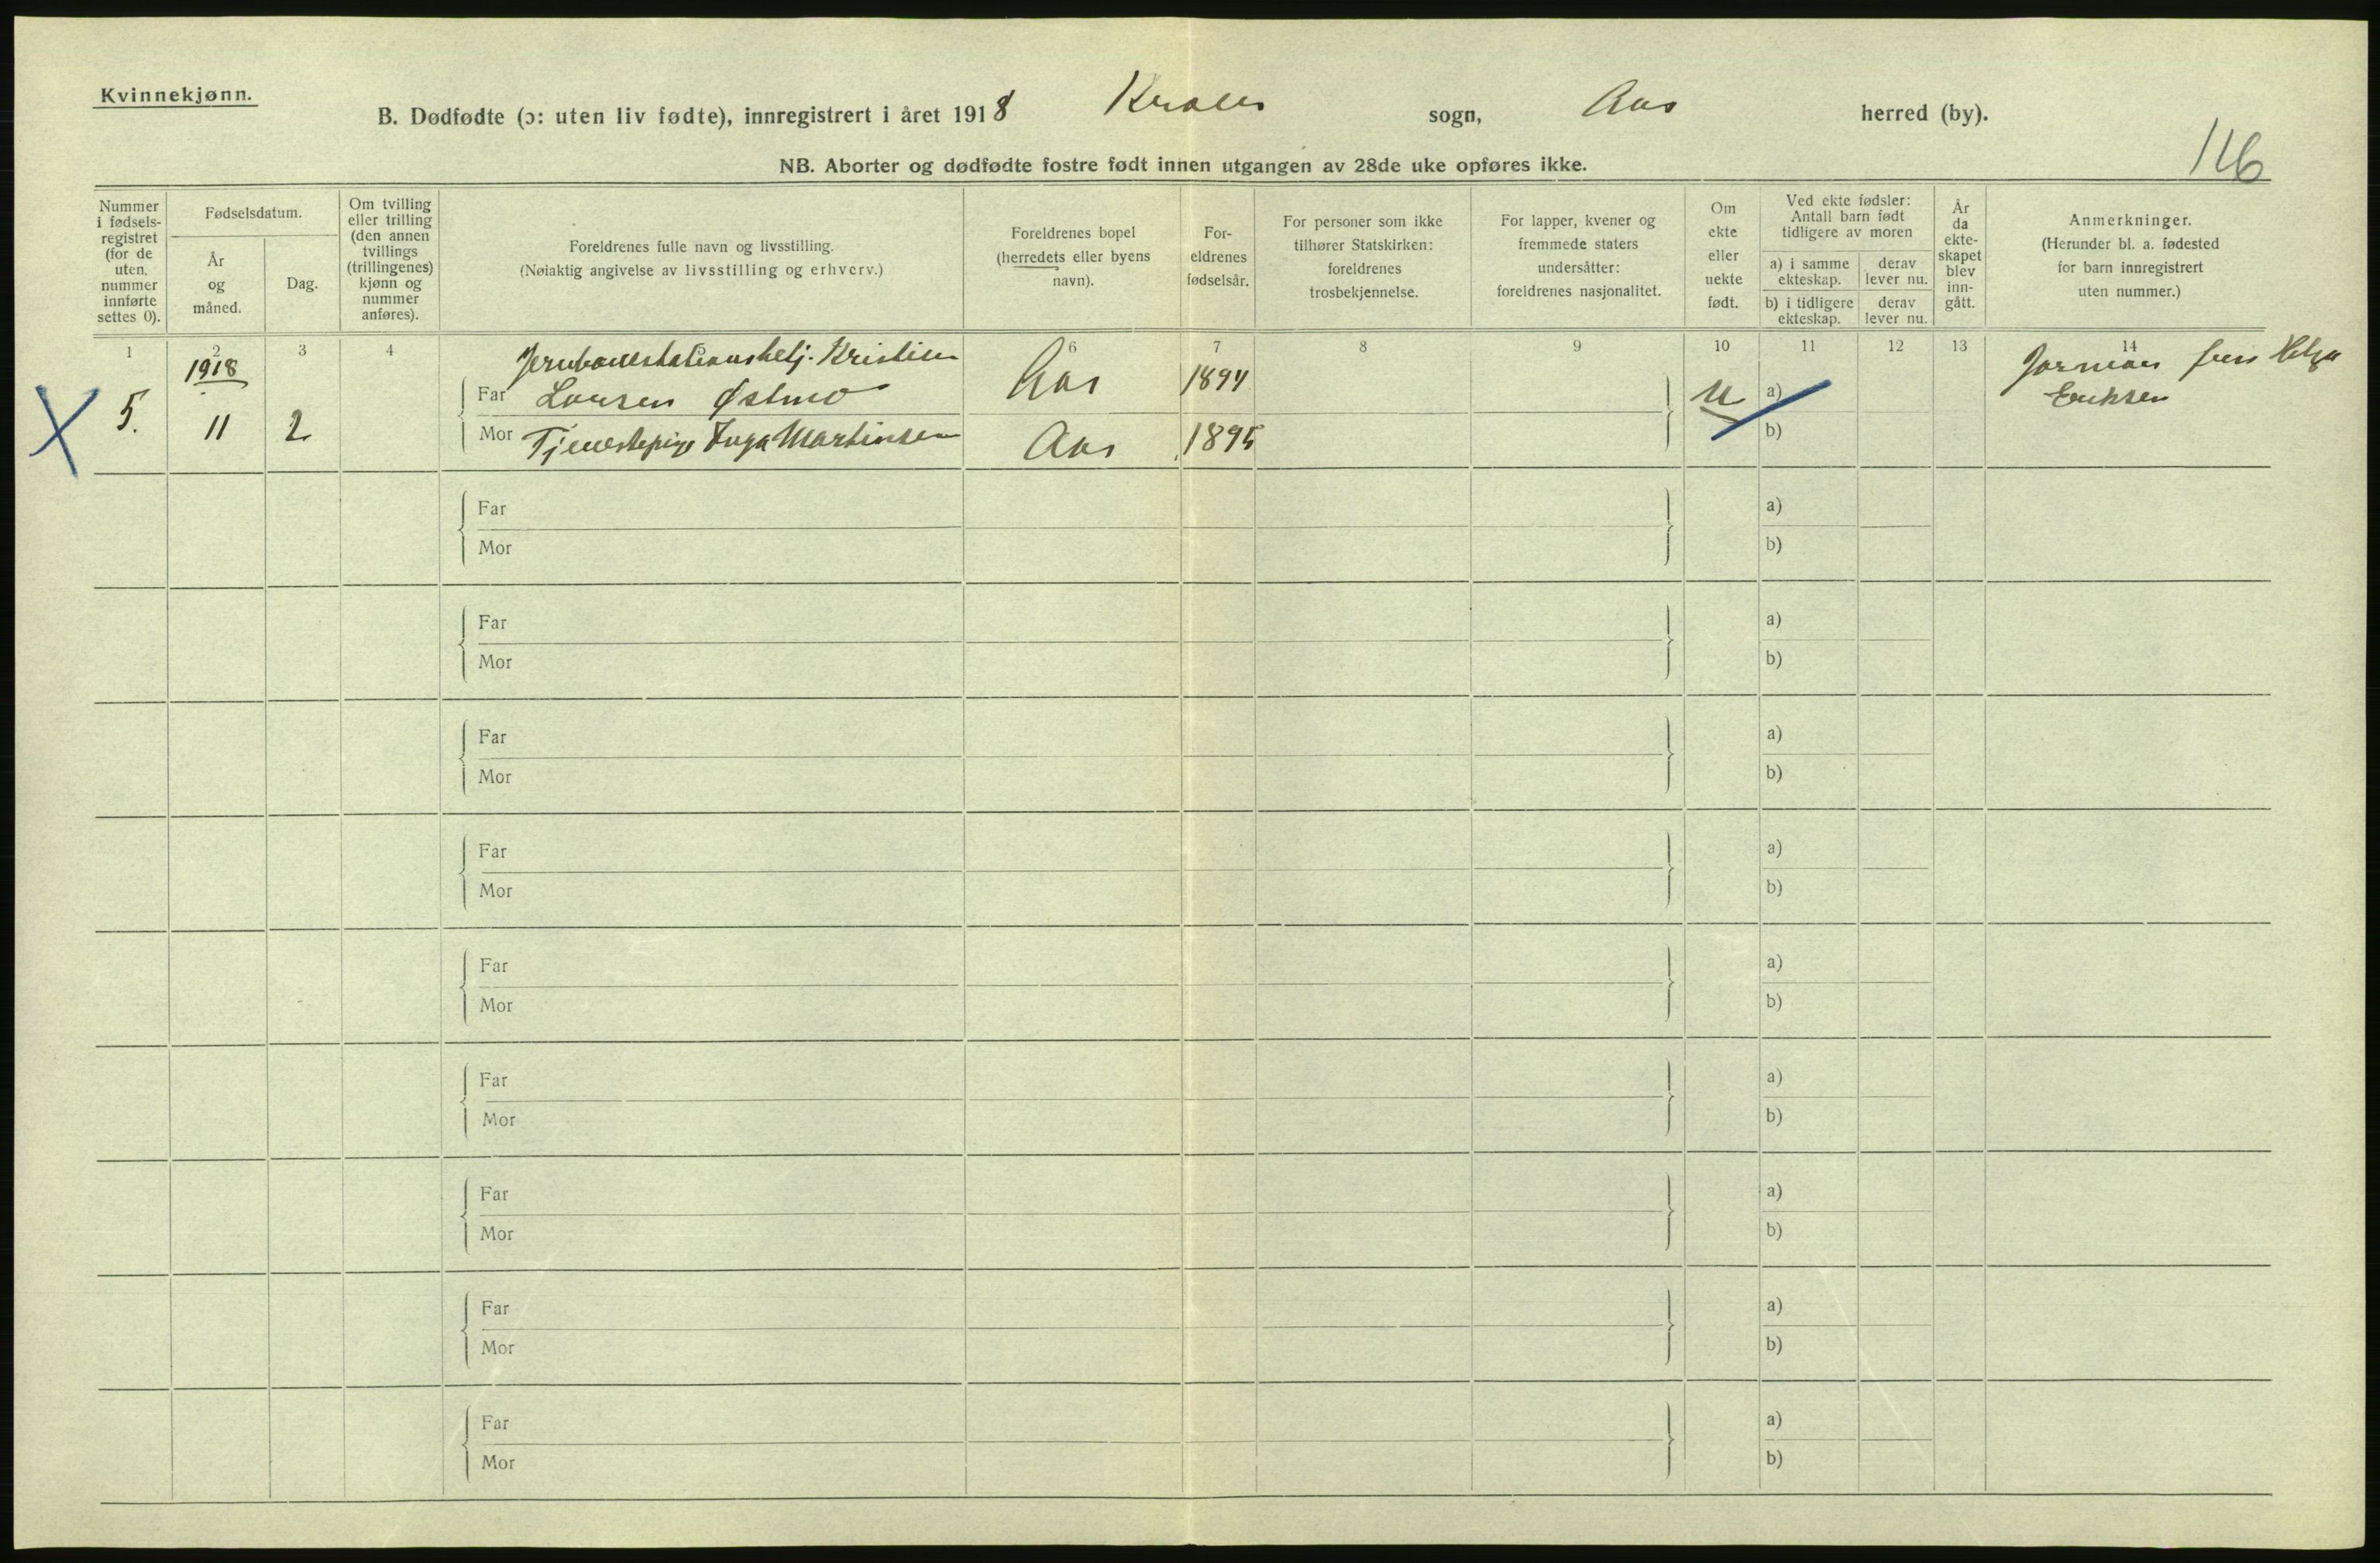 Kvinnekjønn.
B. Dødfødte (ɔ: uten liv fødte), innregistrert i året 1918 Kroer sogn, Aas herred (by).
116
NB. Aborter og dødfødte fostre født innen utgangen av 28de uke opføres ikke.
Nummer
i fødsels-
registret
(for de
uten
nummer
innførte
settes 0).
Fødselsdatum.
År
og
måned.
Dag.
Om tvilling
eller trilling
(den annen
tvillings
(trillingenes)
kjønn og
nummer
anføres).
Foreldrenes fulle navn og livsstilling.
(Nøiaktig angivelse av livsstilling og erhverv.)
Foreldrenes bopel
(herredets eller byens
navn).
For-
eldrenes
fødselsår.
For personer som ikke
tilhører Statskirken:
foreldrenes
trosbekjennelse.
For lapper, kvener og
fremmede staters
undersåtter:
foreldrenes nasjonalitet.
Om
ekte
eller
uekte
født.
Ved ekte fødsler:
Antall barn født
tidligere av moren
a) i samme
ekteskap.
derav
lever nu.
b) i tidligere
ekteskap.
derav
lever nu.
År
da
ekte-
skapet
blev
inn-
gått.
Anmerkninger.
(Herunder bl. a. fødested
for barn innregistrert
uten nummer.)
1 2 3 4 6 7 8 9 10 11 12 13 14
X 5. 1918 11 2
Jernbanestationsbetj. Kristian
Far Larsen Østmo Aas 1894 u a)
Mor Tjenestepige Inga Martinsen Aas 1895 b)
Jormor fru Helga
Eriksen
Far a)
Mor b)
Far a)
Mor b)
Far a)
Mor b)
Far a)
Mor b)
Far a)
Mor b)
Far a)
Mor b)
Far a)
Mor b)
Far a)
Mor b)
Far a)
Mor b)